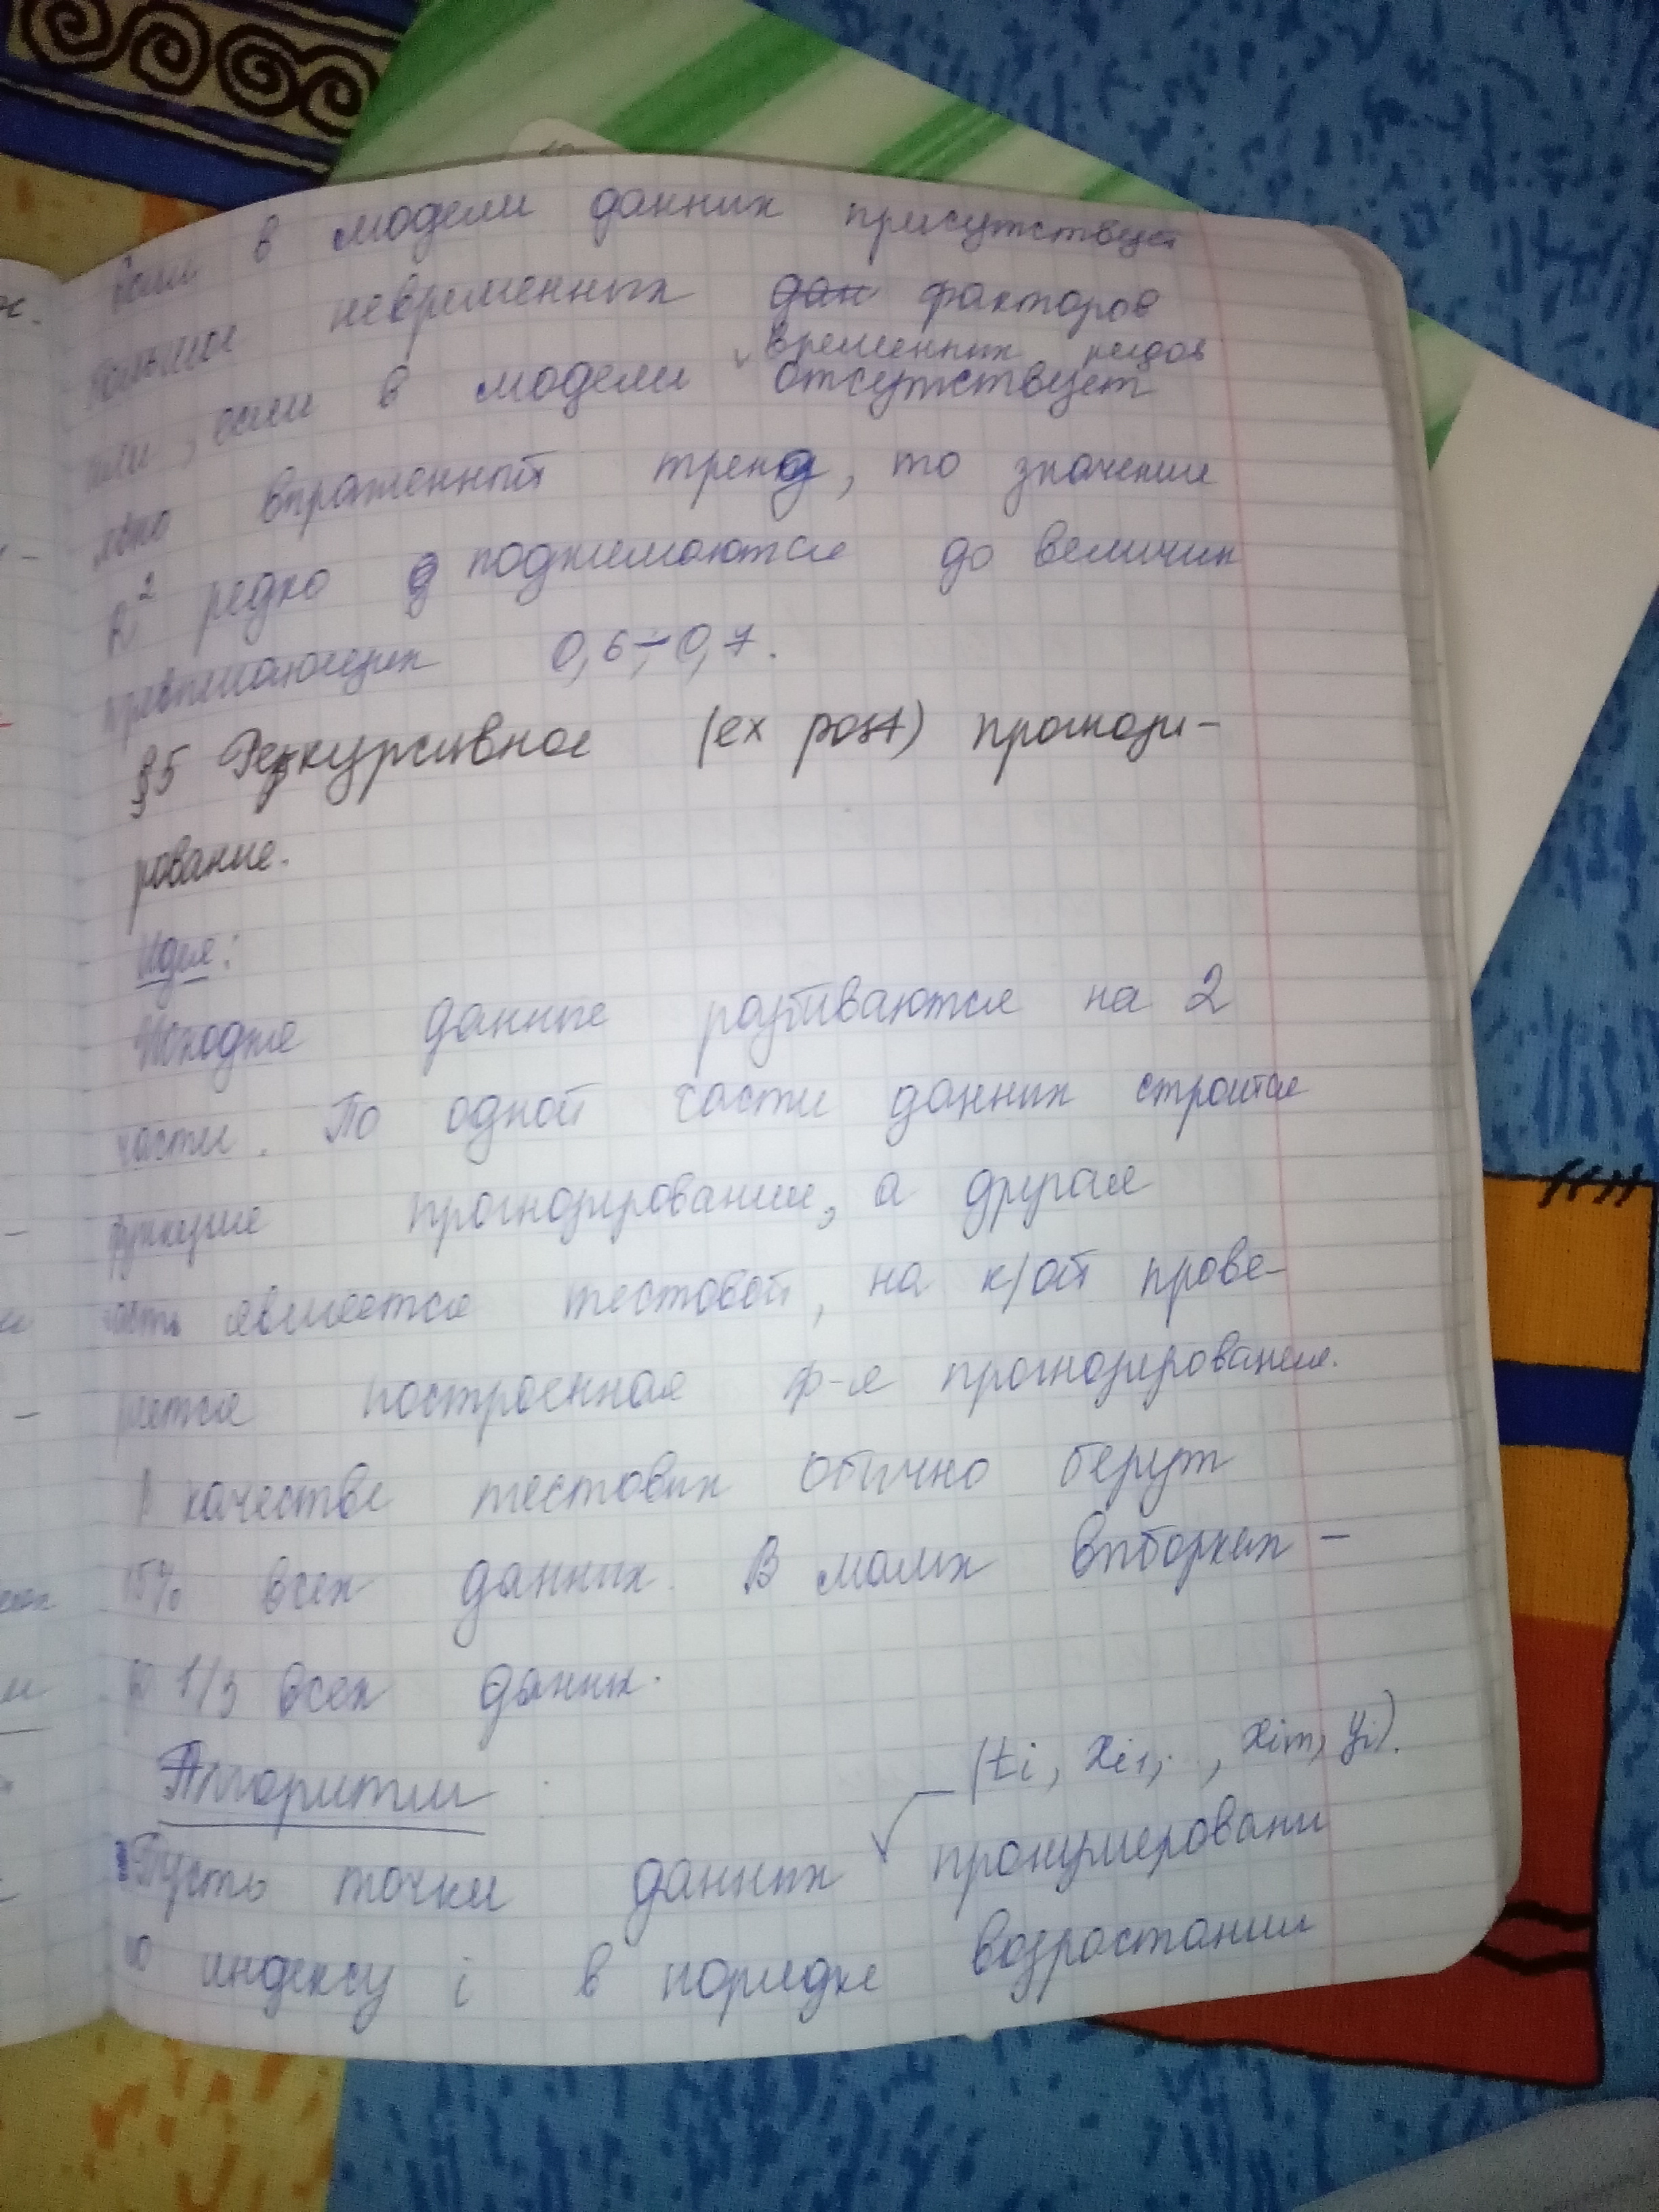 Если в модели данных присутствует
больше невременных дан факторов
временных рядов
или, если в модели отсутствует
явно выраженный тренд, то значения
R² редко поднимаются до величин
превышающих 0,6÷0,7.
§5 Рекурсивное (ex post) прогнози-
рование.
Идея:
Исходные данные разбиваются на 2
части. По одной части данных строится
функция прогнозирования, а другая
часть является тестовой, на к/ой прове-
ряется построенная ф-я прогнозирования.
В качестве тестовых обычно берут
15% всех данных. В малых выборках -
до 1/3 всех данных.
Алгоритм
(ti, xi1, . , xim, yi).
Пусть точки данных пронумерованы
по индексу i в порядке возрастания